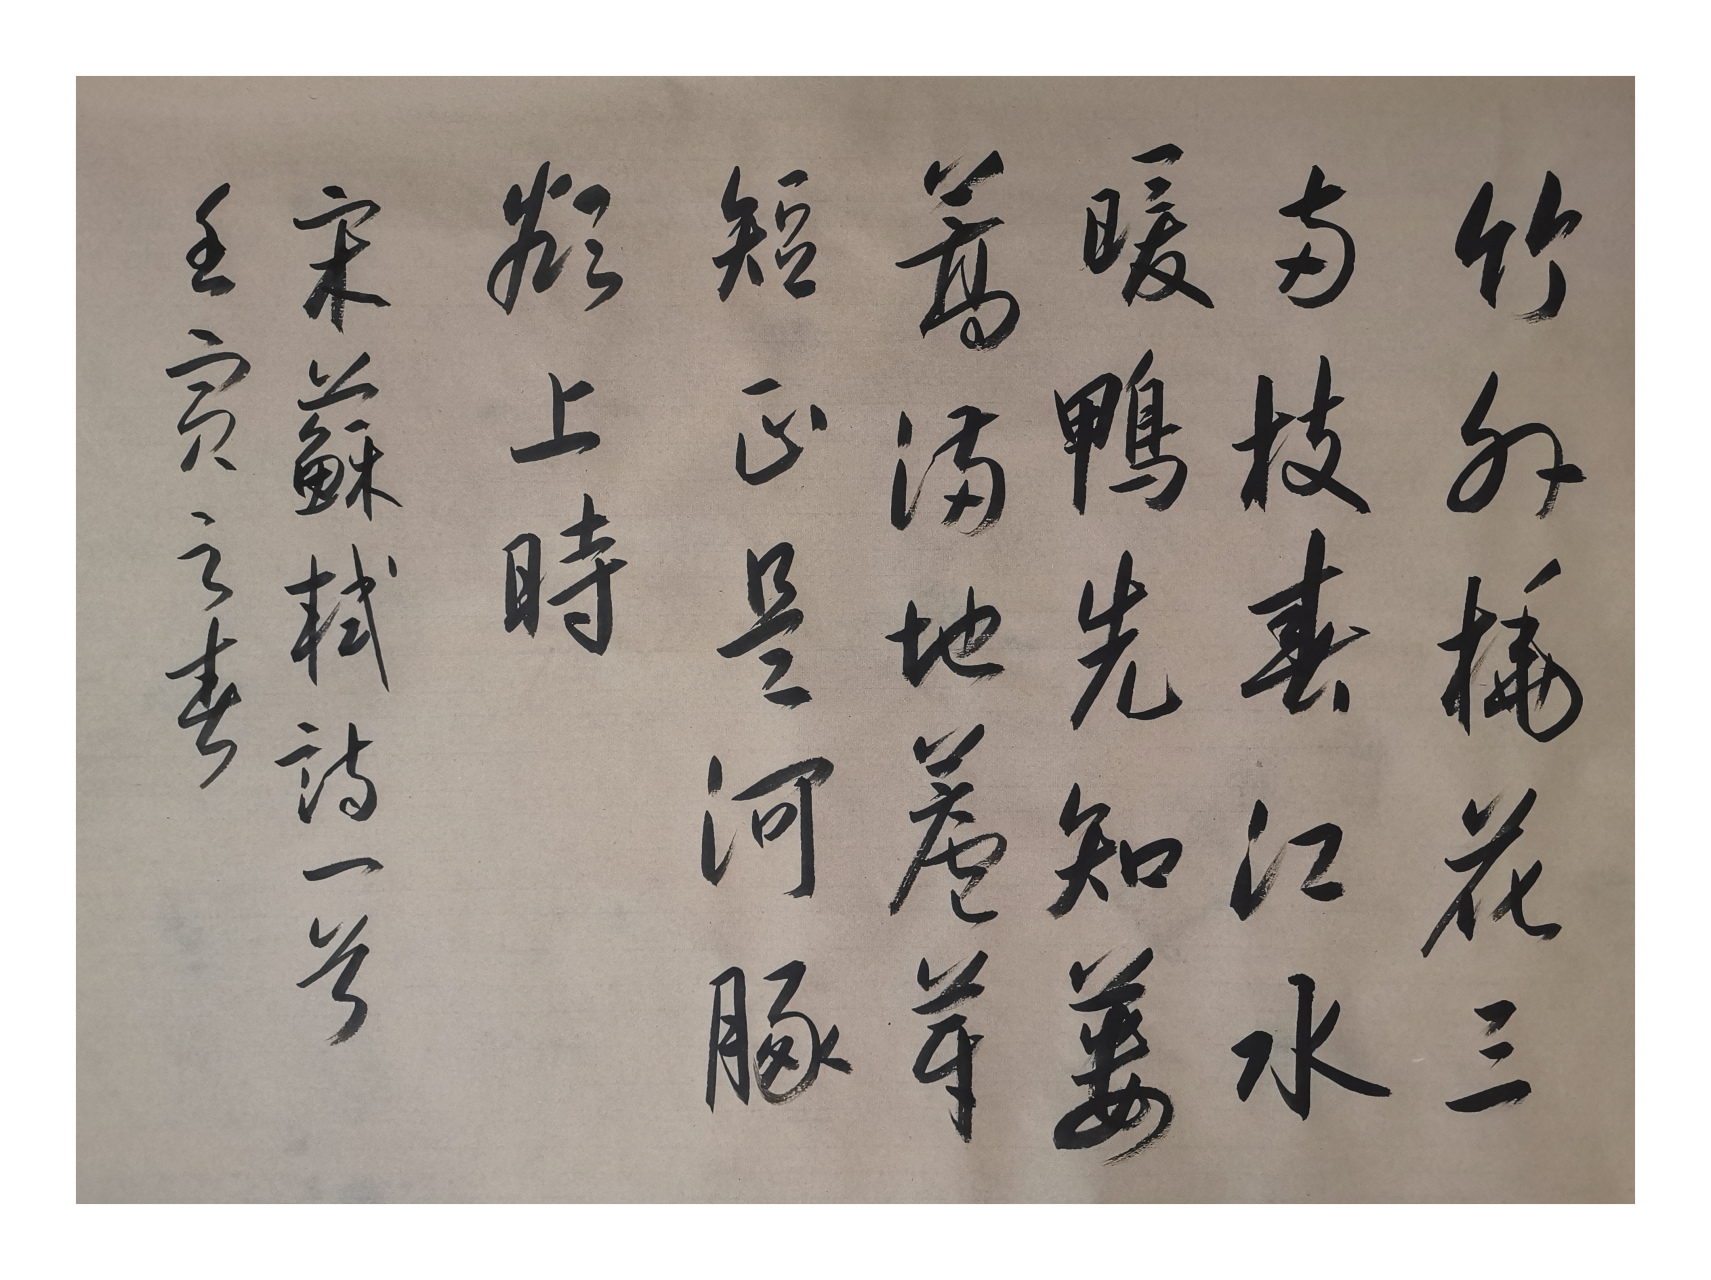 竹外桃花三
両枝春江水
暖鴨先知蔞
蒿满地蘆芽
短正是河豚
欲上時
宋蘇軾詩一首
壬寅之春